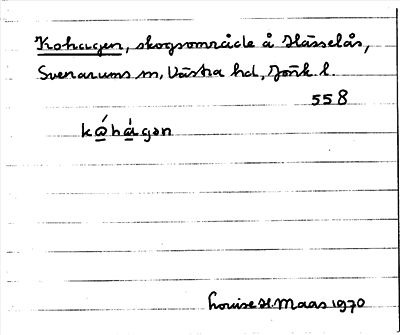 Kohagen, skogsområde å Hässelås,
Svenarums sn, Västra hd, Jönk. l.
558
kó̱hà̱gən
Louise H. Maas 1970